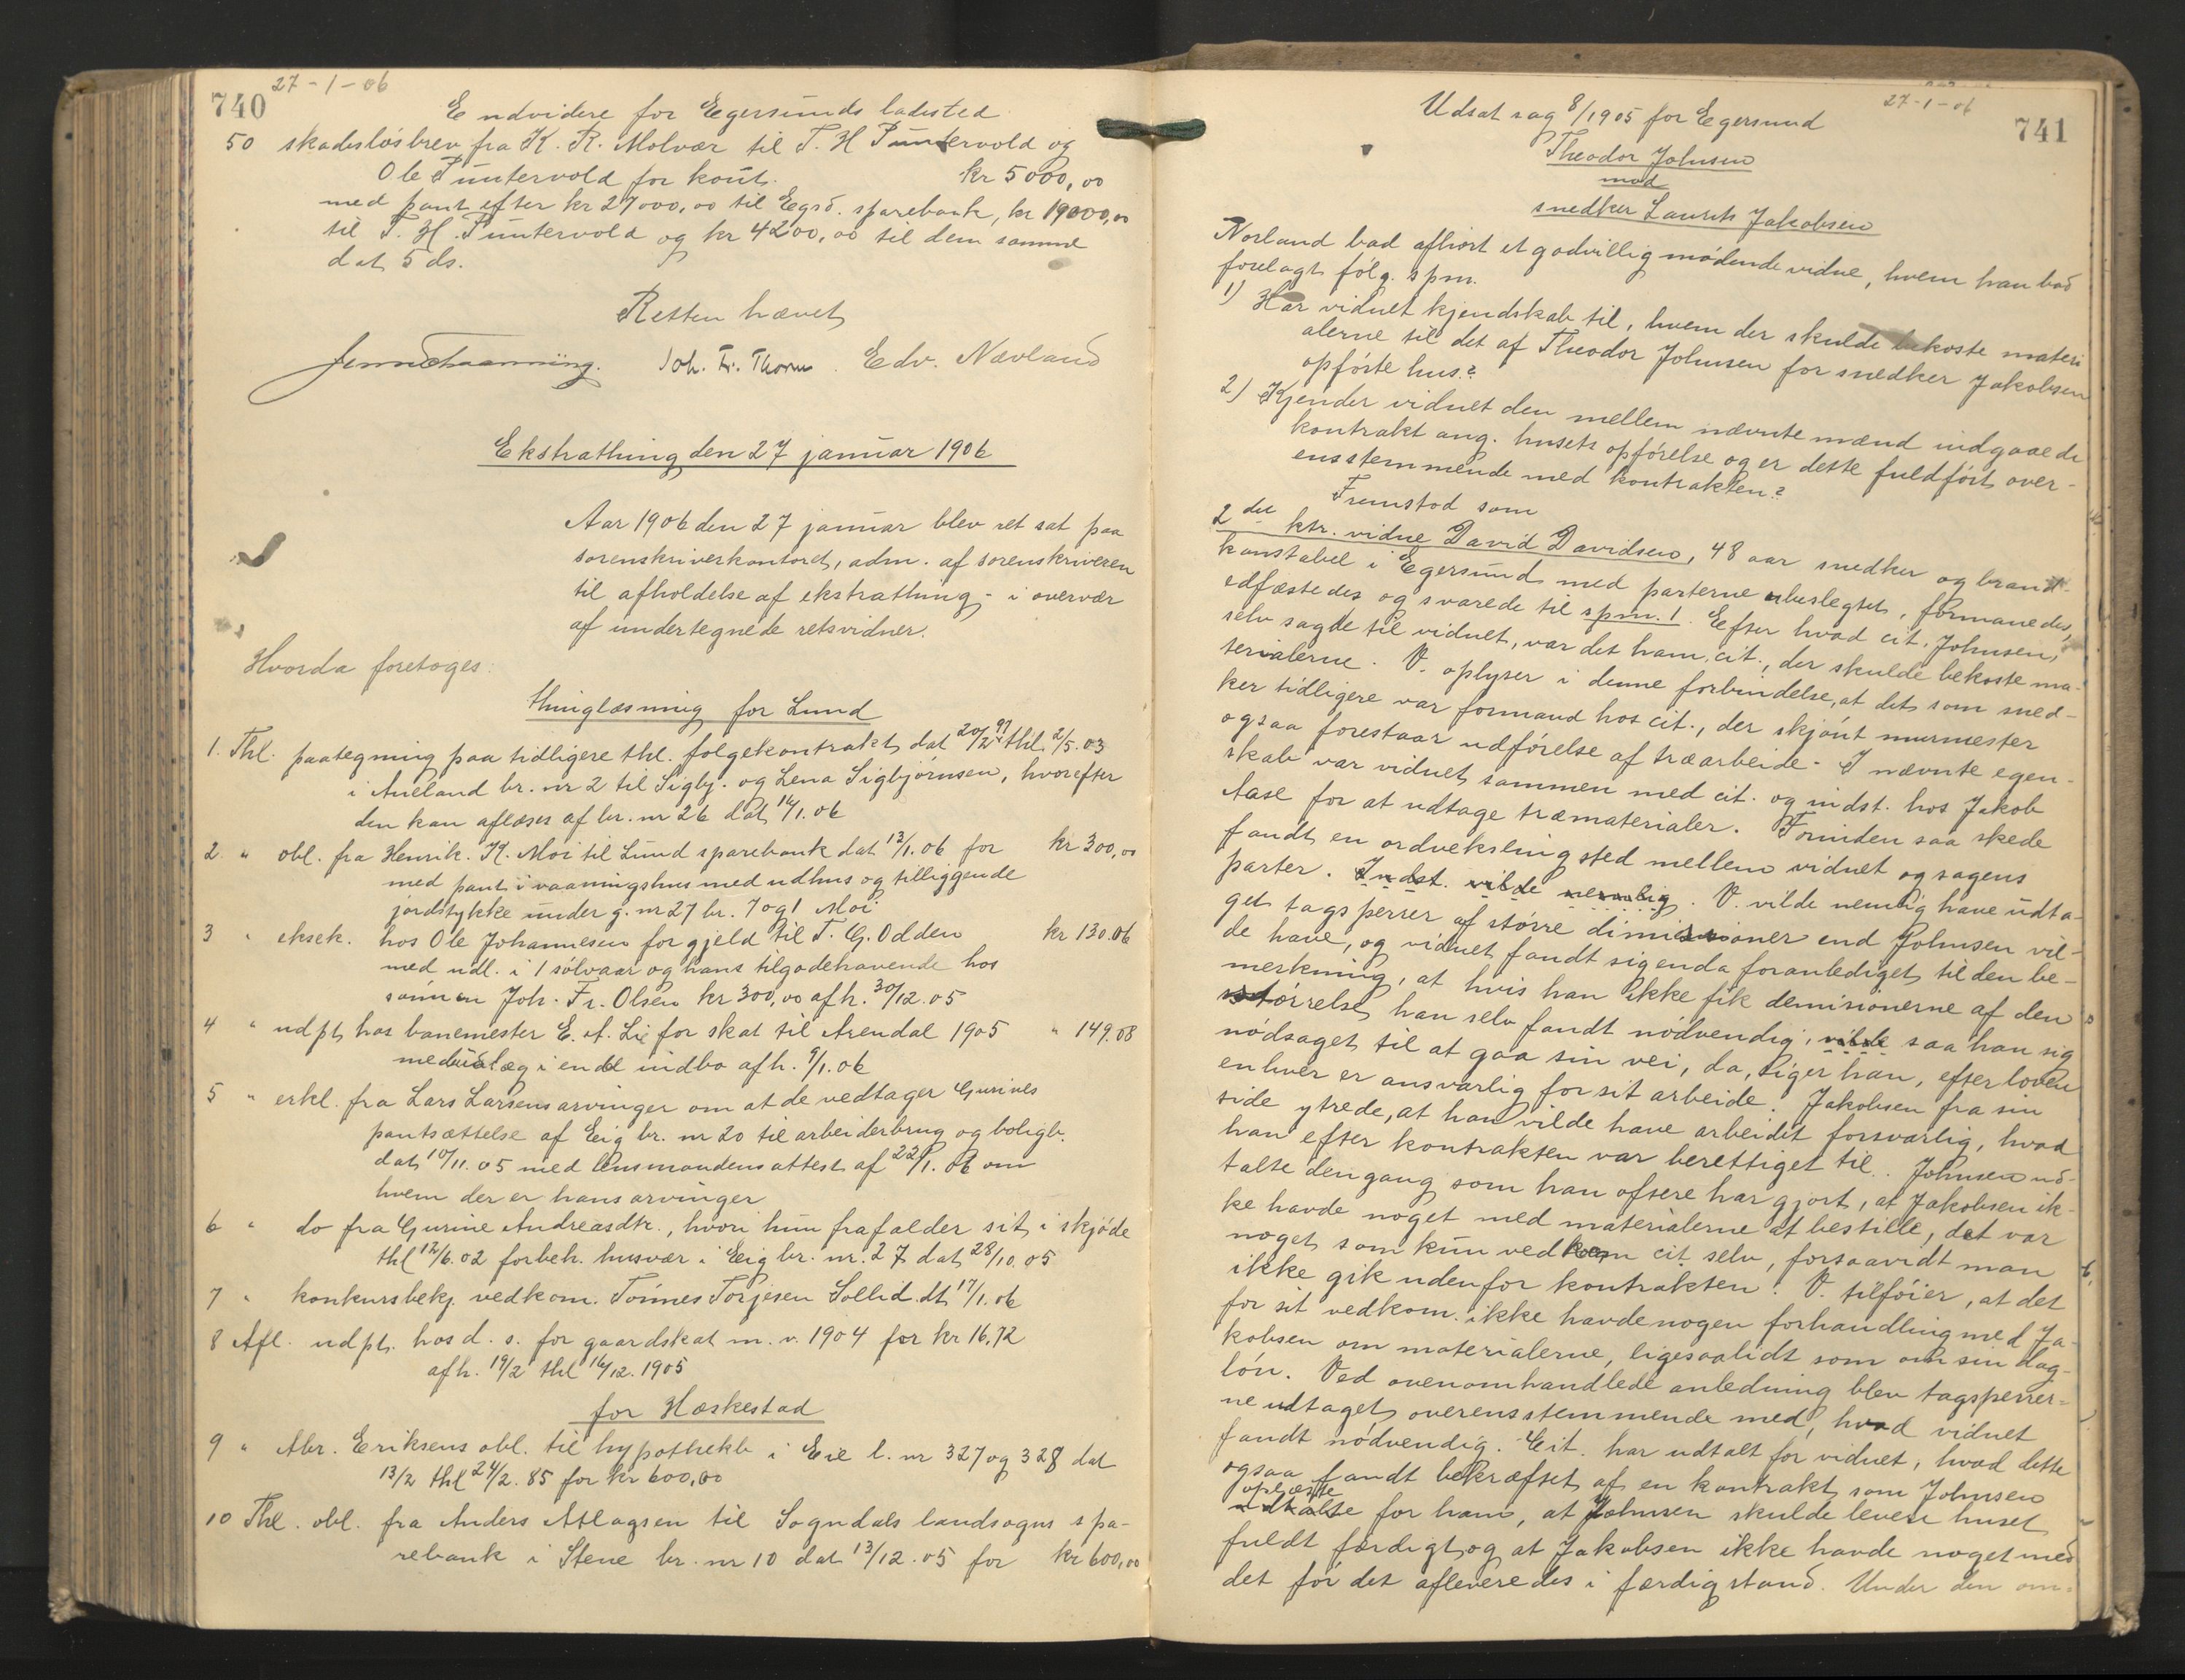 740
27-1-06
Endvidere for Egersunds ladested
50 skadesløsbrev fra K. R. Molvær til T. H Puntervold og
Ole Puntervold for kont. kr 5000,00
med pant efter kr 27000,00 til Egsd. sparebank, kr 19000,00
til T. H. Puntervold og kr 4200,00 til dem samme
dat 5 ds.
Retten hævet
Joh. Fr. Thorsen. Edv. Nævland
Ekstrathing den 27 januar 1906
Aar 1906 den 27 januar blev ret sat paa
sorenskriverkontoret, adm. af sorenskriveren
til afholdelse af ekstrathing - i overvær
af undertegnede retsvidner.
Hvorda foretoges:
thinglæsning for Lund
1. Thl. paategning paa tidligere thl. følgekontrakt dat 20/2 97 thl. 2/5.03
i Aueland br. nr 2 til Sigbj. og Lena Sigbjørnsen, hvorefter
den kan aflæses af br. nr 26 dat 14/1.06
2. " obl. fra Henrik. K. Moi til Lund sparebank dat 13/1.06 for kr 300,00
med pant i vaaningshus med udhus og tilliggende
jordstykke under g. nr 27 br. 7 og 1 Moi
3 " eksek. hos Ole Johannesen for gjeld til T. G. Odden kr 130.06
med udl. i 1 sølvaar og hans tilgodehavende hos
sønnen Joh. Fr. Olsen kr 300,00 afh. 30/12.05
4 " udpt hos banemester E. A. Lie for skat til Arendal 1905 " 149.08
med udlæg i endel indbo afh. 9/1.06
5 " erkl. fra Lars Larsens arvinger om at de vedtager Gurines
pantsættelse af Eig br. nr 20 til arbeiderbrug og boligb.
dat 10/11.05 med lensmandens attest af 22/1.06 om
hvem der er hans arvinger
6 " do fra Gurine Andreasdtr., hvori hun frafalder sit i skjøde
thl 12/6.02 forbeh. husvær i Eig br. nr. 27 dat 28/10.05
7 " konkursbekj. vedkom. Tønnes Torjesen Sollid. dt 17/1.06
8 Afl. udpt. hos d. s. for gaardskat m. v. 1904 for kr 16,72
afh. 19/2 thl 16/12.1905
for Hæskestad
9 " Abr. Eriksens obl. til hypothekb i Eie l. nr 327 og 328 dat
13/2 thl 24/2.85 for kr 600,00
10 Thl. obl. fra Anders Atlagsen til Sogndals landsogns spa-
rebank i Stene br. nr 10 dat 13/12.05 for kr 600,00
27-1-06
741
Udsat sag 8/1905 for Egersund
Theodor Johnsen
mod
snedker Laurits Jakobsen
Norland bad afhørt et godvillig mødende vidne, hvem han bad
forelagt følg. spm.
1) Har vidnet kjendskab til, hvem der skulde bekoste materi
alerne til det af Theodor Johnsen for snedker Jakobsen
opførte hus?
2) Kjender vidnet den mellem nævnte mænd indgaaede
kontrakt ang. husets opførelse og er dette fuldført over-
ensstemmende med kontrakten?
Fremstod som
2det ktr. vidne David Davidsen, 48 aar snedker og brand-
konstabel i Egersund med parterne ubeslegtet, formanedes,
edfæstedes og svarede til spm. 1. Efter hvad cit. Johnsen,
selv sagde til vidnet, var det ham, cit., der skulde bekoste ma-
terialerne. V. oplyser i denne forbindelse, at det som sned-
ker tidligere var formand hos cit., der skjønt murmester
ogsaa forestaar udførelse af træarbeide. I nævnte egen-
skab var vidnet sammen med cit. og indst. hos Jakob
Aase for at udtage træmaterialer. Forinden saa skede
fandt en ordveksling sted mellem vidnet og sagens
parter. Indst. vilde nemlig. V. vilde nemlig have udta-
get tagsperrer af større dimissioner end Johnsen vil-
de have, og vidnet fandt sig enda foranlediget til den be-
merkning, at hvis han ikke fik demisionerne af den
størrelse han selv fandt nødvendig, vilde saa han sig
nødsaget til at gaa sin vei, da, siger han, efter loven
enhver er ansvarlig for sit arbeide. Jakobsen fra sin
side ytrede, at han vilde have arbeidet forsvarlig, hvad
han efter kontrakten var berettiget til. Johnsen ud-
talte dengang som han oftere har gjort, at Jakobsen ik-
ke havde noget med materialerne at bestille, det var
noget som kun vedkom cit. selv, forsaavidt man
ikke gik udenfor kontrakten. V. tilføier, at det
for sit vedkom. ikke havde nogen forhandling med Ja-
kobsen om materialerne, ligesaalidt som om sin dag-
løn. Ved ovenomhandlede anledning blev tagsperrer-
ne udtaget overensstemmende med, hvad vidnet
fandt nødvendig. Cit. har udtalt for vidnet, hvad dette
ogsaa fandt bekræftet af en kontrakt som Johnsen
oplæste
udtalte for ham, at Johnsen skulde levere huset
fuldt færdigt og at Jakobsen ikke havde noget med
det før det afleveredes i færdig stand. Under den om-